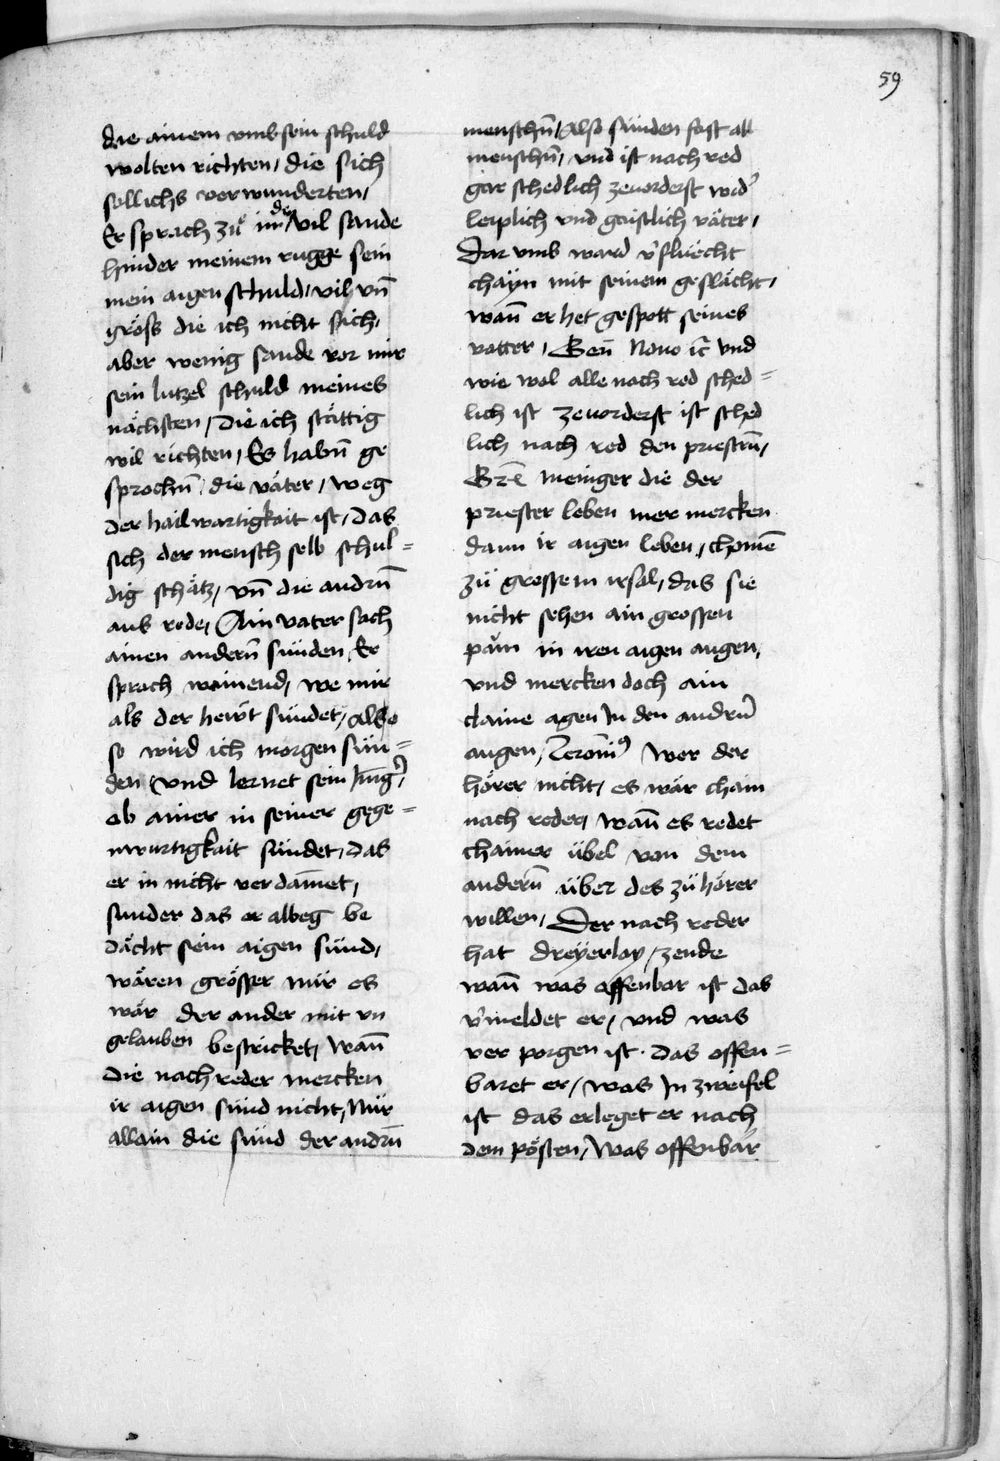 59
die ainem vmb sein schuld
wolten richten / die sich
sollichs verwunderten /
Er sprach zů im / die vil sande
hinder meinem rugge sein
mein aigen schuld / vil vn̄
gröss die ich nicht sich /
aber wenig sande vor mir
sein lutzel schuld meines
nächsten / Die ich stättig
wil richten / Es habn̄ ge
sprochn̄ / die väter / weg
der hailwartigkait ist / Das
sich der mensch selb schul=
dig schätz / vn̄ die andrn̄
aus rede / Ain vater sach
ainen andern̄ sünden / Er
sprach wainend / we mir
als der hewt sündet / Also
so wird ich morgen sün=
den / vnd lernet sein
ob ainer in seiner gege=
nwurtigkait sündet / Das
er in nicht verdam̄et /
sunder das er albeg be
dächt sein aigen sünd /
wären grösser nür es
wär der ander mit vn
gelauben bestricket / Wan̄
die nachreder mercken
ir aigen sünd nicht / Nür
allain die sünd der andrn̄
menschn̄ / Also sünden fast all
menschn̄ / vnd ist nach red
gar schedlich zeuorderst wid'
leiplich vnd gaistlich väter /
Dar vmb ward v'fluecht
chayn mit seinem geslächt /
wan̄ er het gespott seines
vatter / Gen̄ Nono ic̄ vnd
wie wol alle nach red sched=
lich ist zeuorderst ist sched
lich nach red den priestrn̄ /
Meniger die der
priester leben mer mercken
dann ir aigen leben / chomē
zů grossem irsal / das sie
nicht sehen ain grossen
pawm in iren aigen augen /
vnd mercken doch ain
claine agen In den andrn̄
augen / Jeronī9 Wer der
hörer nicht / es wär chain
nach reder / wan̄ es redet
chainer übel von dem
andern̄ über des zůhörer
willen / Der nach reder
hat dreyerlay / zende
wan̄ was offenbar ist das
v'meldet er / vnd was
verporgen ist · das offen=
baret er / was In zweifel
ist das erleget er nach
dem pösten / Was offenbar